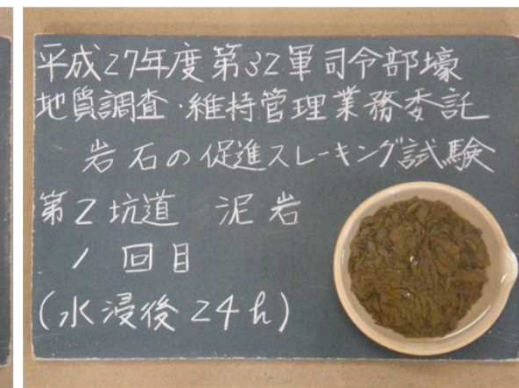 平成27年度第32軍司令部壕
地質調査・維持管理業務委託
岩石の促進スレーキング試験
第2坑道 泥岩
1回目
(水浸後24h)